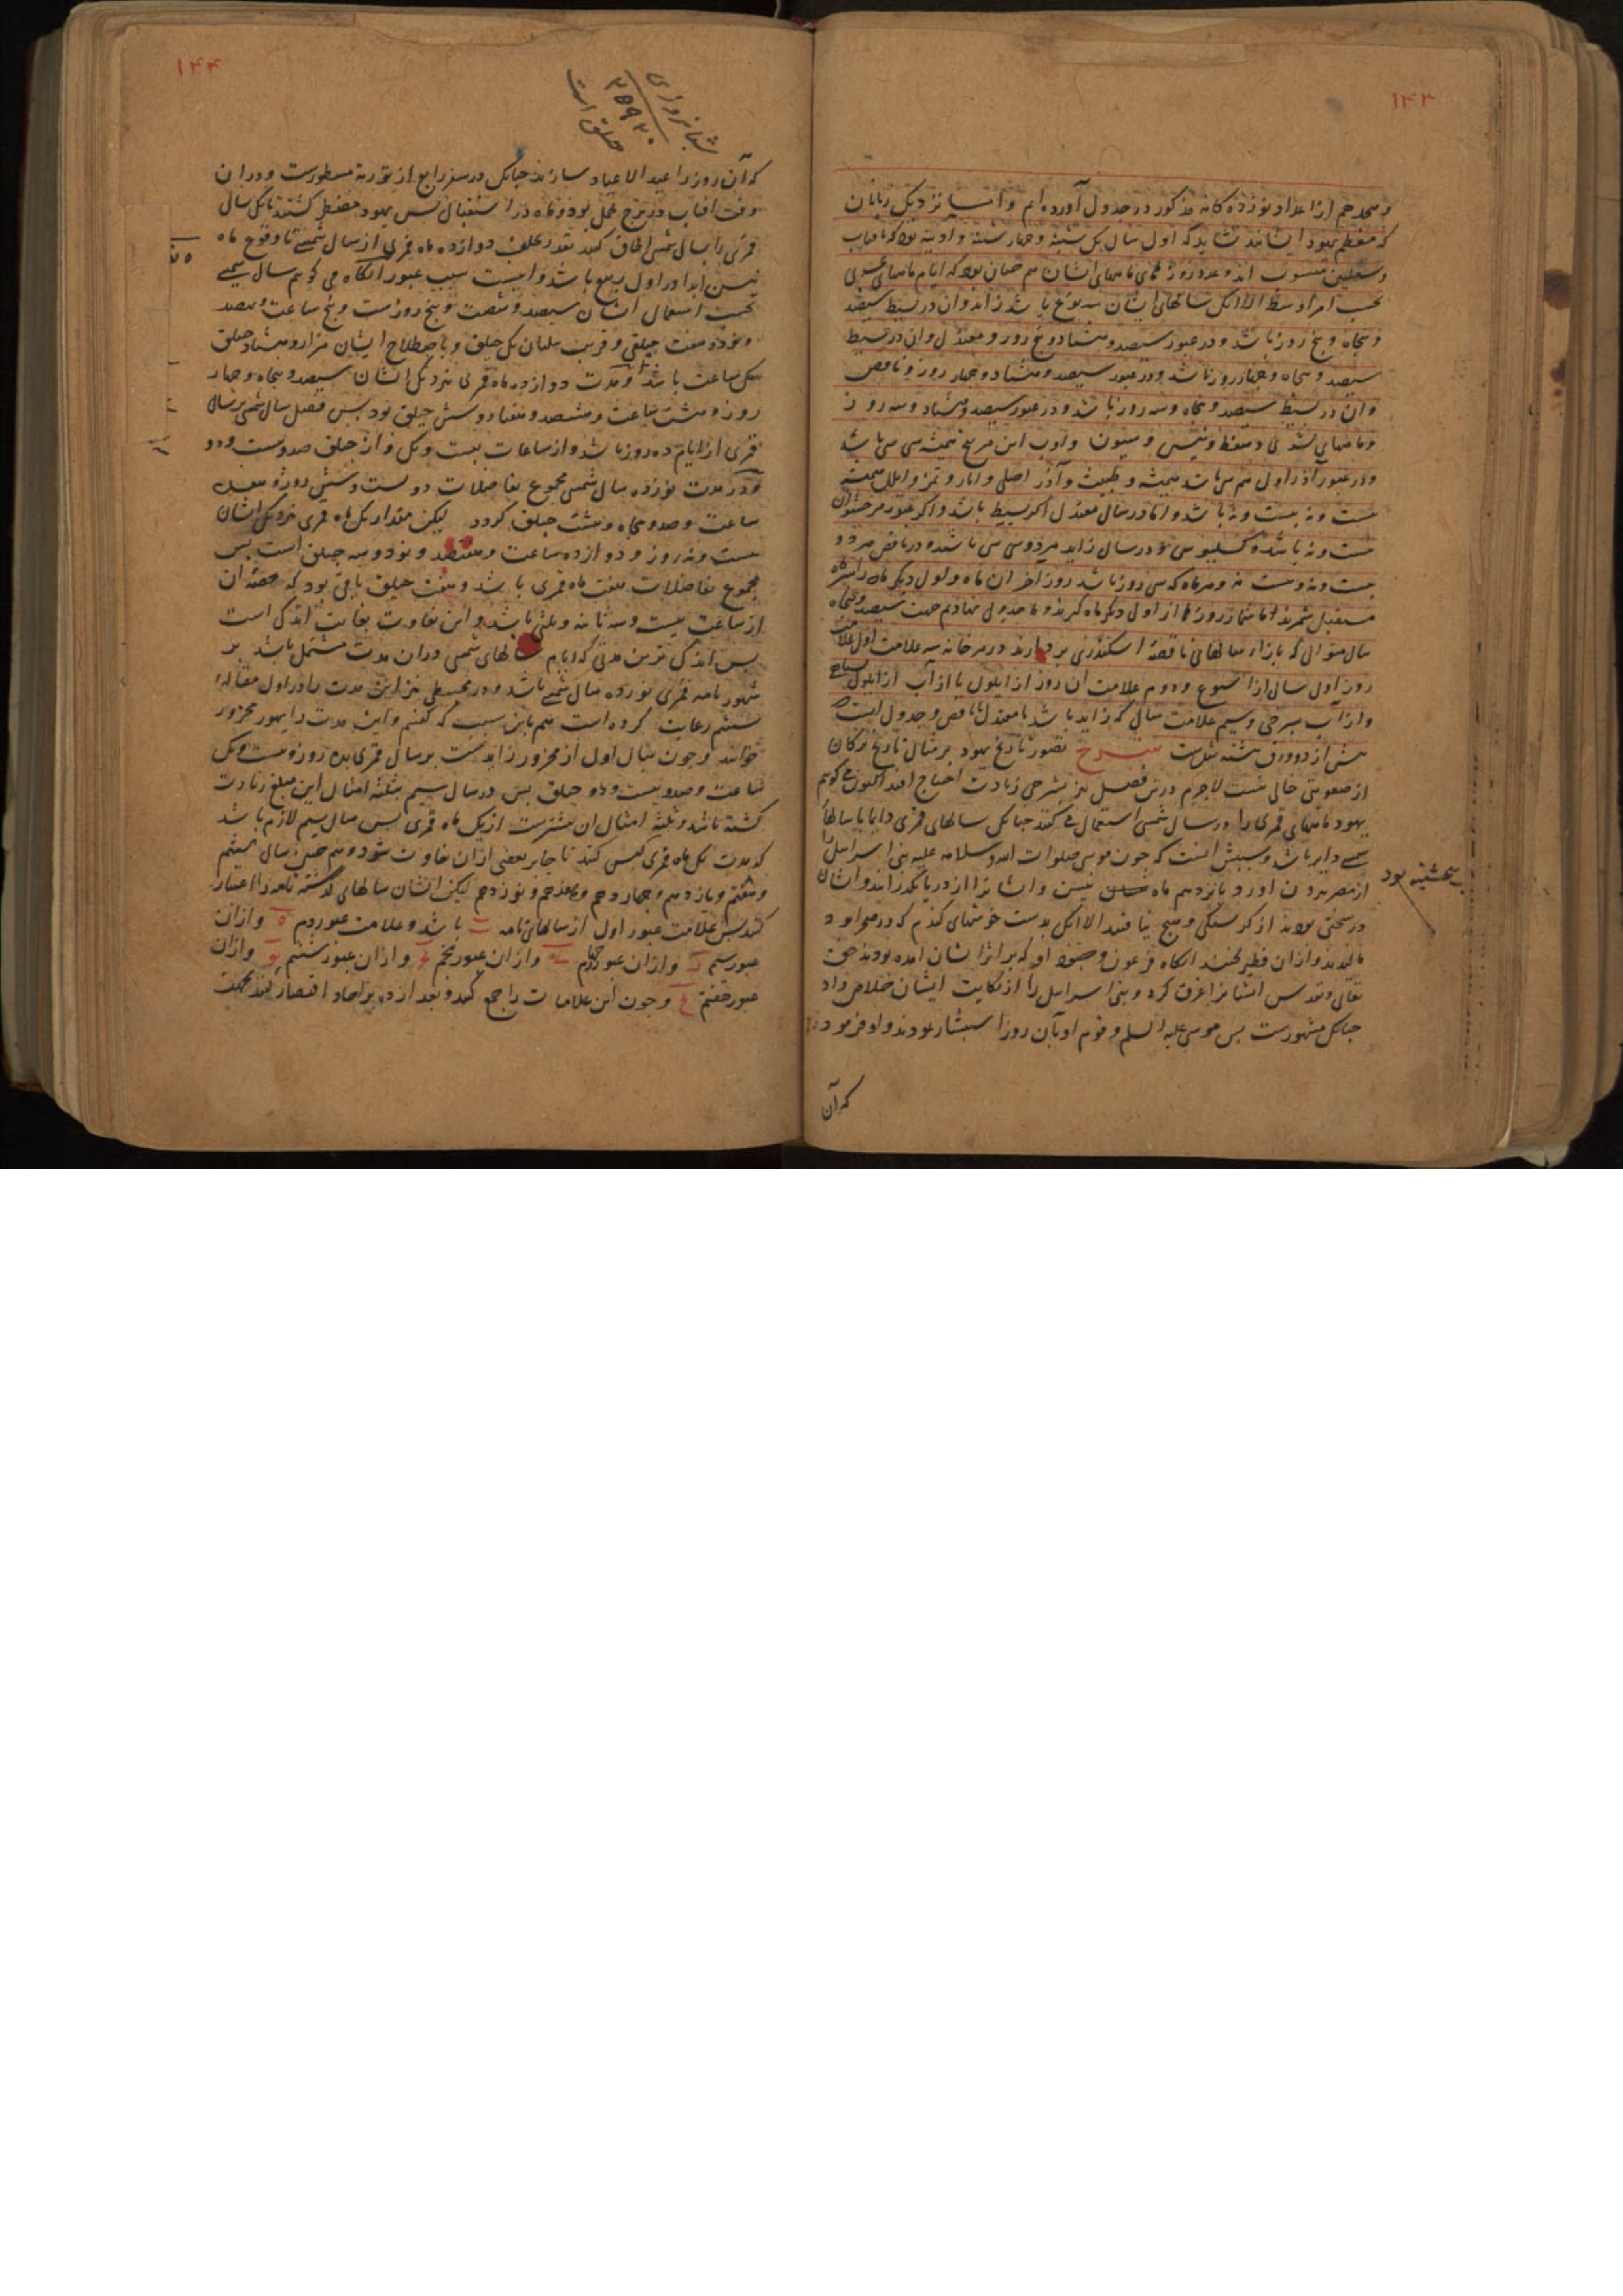 ۱۴۳
و هیجدهم از اعداد نوزده کانه مذکور در جدول آورده ایم و اما نزدیک ربانیان
که معظم یهود ایشانند نشاید که اول سال یک شنبه و چهار شنبه و آدینه بود که بافتاب
و منسوب اند و عدد روزهای ماههای ایشان هم چنان بود که ایام ماههای
بحسب امر اوسط الا آنک سالهای ایشان سه نوع باشد زاید و آن در بسیط سیصد
و پنجاه و پنج روز باشد و در عبور سیصد و هشتاد و پنج روز و معتدل و آن در بسیط
سیصد و پنجاه و چهار روز باشد و در عبور سیصد و هشتاد و چهار روز و ناقص
و آن در بسیط سیصد و پنجاه و سه روز باشد و در عبور سیصد و هشتاد و سه روز
و ماههای تشری و شفط و نیسن و سیون و اوب این هر پنج همیشه سی سی باشد
و در عبور آذر اول هم سی باشد همیشه و طیبث و آذر اصلی و ایار و تمز و ایلل همیشه
بیست و نه بیست و نه باشد و اما در سال معتدل اگر بسیط باشد و اگر عبور مرحشوان
بیست و نه باشد و کسلیو سی و در سال زاید هر دو سی سی باشند و در ناقص هر دو
بیست و نه بیست و نه و هر ماه که سی روز باشد روز آخر آن ماه و اول دیگر ماه را سر ماه
مستقبل شمرند اما شمار روزها از اول دیگر ماه گیرند و ما جدولی نهادیم جهت سیصد و پنجاه
سال متوالی که بازاء سالهای ناقصه اسکندری بر دارند در هر خانه سه علامت اول علامت
روز اول سال از اسبوع و دوم علامت آن روز از ایلول یا از آب از ایلول بسیاهی
و از آب بسرخی و سیم علامت سالی که زاید باشد یا معتدل یا ناقص و جدول اینست
پیش از دو ورق هشته شدست شرح تصور تاریخ یهود بر مثال تاریخ ترکان
از صعوبتی خالی نیست لاجرم درین فصل نیز بشرحی زیادت احتیاج افتد اکنون می گویم
یهود ماههای قمری را در سال شمسی استعمال می کنند چنانک سالهای قمری دایما با سالهای
شمسی دایر باشد و سببش آنست که چون موسی صلوات الله و سلامه علیه بنی اسرائیل را
از مصر بیرون آورد پانزدهم ماه نیسن و ایشانرا از دریا بگذرانید و ایشان
پنجشنبه بود
در سختی بودند از گرسنگی و هیچ نیافتند الا آنک بدست خوشهای گندم که در صحرا بود
مالیدند و از آن فطیر پختند آنگاه فرعون و جنود او که بر اثر ایشان آمده بودند حق
تعالی و تقدس ایشانرا غرق کرد و بنی اسرائیل را از نکایت ایشان خلاص داد
چنانک مشهورست پس موسی علیه السلم و قوم او بآن روز استبشار نمودند و او فرمود
که آن
۱۴۴
شبانروزی
۲۵۹۲۰
حلق است
که آن روز را عید الاعیاد سازند چنانک در سفر رابع از توریة مسطورست و در آن
وقت آفتاب در برج حمل بود و ماه در استقبال پس یهود مضطر گشتند تا یک سال
قمری را بسال شمسی الحاق کنند بقدر تخلف دوازده ماه قمری از سال شمسی تا وقوع ماه
نیسن ابدا در اول ربیع باشد و اینست سبب عبور آنگاه می گویم سال شمسی
بحسب استعمال ایشان سیصد و شصت و پنج روزست و پنج ساعت و هفصد
و نود و هفت حیلقی و قریب یک حیلق و باصطلاح ایشان هزار و هشتاد حیلق
یک ساعت باشد و مدت دوازده ماه قمری نزدیک ایشان سیصد و پنجاه و چهار
روز و هشت ساعت و هشتصد و هفتاد و شش حیلق بود پس فضل سال شمسی بر سال
قمری از ایام ده روز باشد و از ساعات بیست و یک و از حیلق صد و بیست و دو
و در مدت نوزده سال شمسی مجموع تفاضلات دویست و شش روز و هفده
ساعت و صد و پنجاه و هشت حیلق گردد لیکن مقدار یک ماه قمری نزدیک ایشان
بیست و نه روز و دوازده ساعت و هفتصد و نود و سه حیلق است پس
مجموع تفاضلات هفت ماه قمری باشد و هفت حیلق باقی بود که حصه آن
از ساعت بیست و سه ثانیه و ثلثی باشد و این تفاوت بغایت اندکی است
پس اندکی ترین مدتی که ایام سالهای شمسی در آن مدت مشتمل باشد بر
شهور تامه قمری نوزده سال شمسی باشد و در مجسطی نیز این مدت را در اول مقاله
ششم رعایت کرده است هم باین سبب که گفتم و این مدت را یهود محزور
خوانند و چون سال اول از محزور زایدست بر سال قمری بده روز و بیست و یک
ساعت و صد و بیست و دو حیلق پس در سال سیم بثلثه امثال این مبلغ زیادت
گشته باشد و ثلثه امثال آن بیشترست از یک ماه قمری پس سال سیم لازم باشد
که مدت یک ماه قمری کبس کنند تا جابر بعضی از آن تفاوت شود و هم چنین سال ششم
و هشتم و یازدهم و چهاردهم و هفدهم و نوزدهم لیکن ایشان سالهای گذشته تامه را اعتبار
کنند پس علامت عبور اول از سالهای تامه ب باشد و علامت عبور دوم ه و از آن
عبور سیم ز و از آن عبور چهارم ی و از آن عبور پنجم یج و از آن عبور ششم یو و از آن
عبور هفتم یح و چون این علامات را جمع کنند و بعد از ده بر آحاد اقتصار کنند بجهت